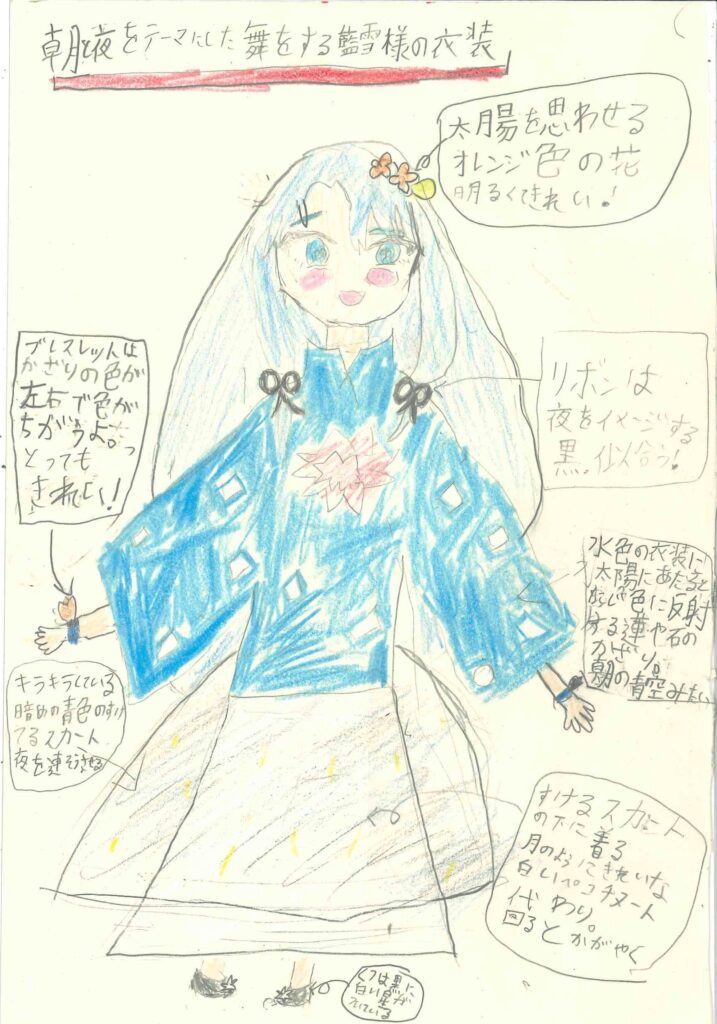 朝と夜をテーマにした舞をする藍雪様の衣装
太陽を思わせる
オレンジ色の花
明るくてきれい!
ブレスレットは
かざりの色が
左右で色が
ちがうよ。
とっても
きれい!
リボンは
夜をイメージする
黒。似合う!
水色の衣装に
太陽にあたると
色に反射
する蓮や石の
かざり。
朝の青空みたい
キラキラしている
暗めの青色のすけ
てるスカート
夜を連そうさせる
すけるスカート
の下に着る
月のようにきれいな
白いペコチヌート
代わり。
回るとかがやく
くつは黒に
白い星が
ついている